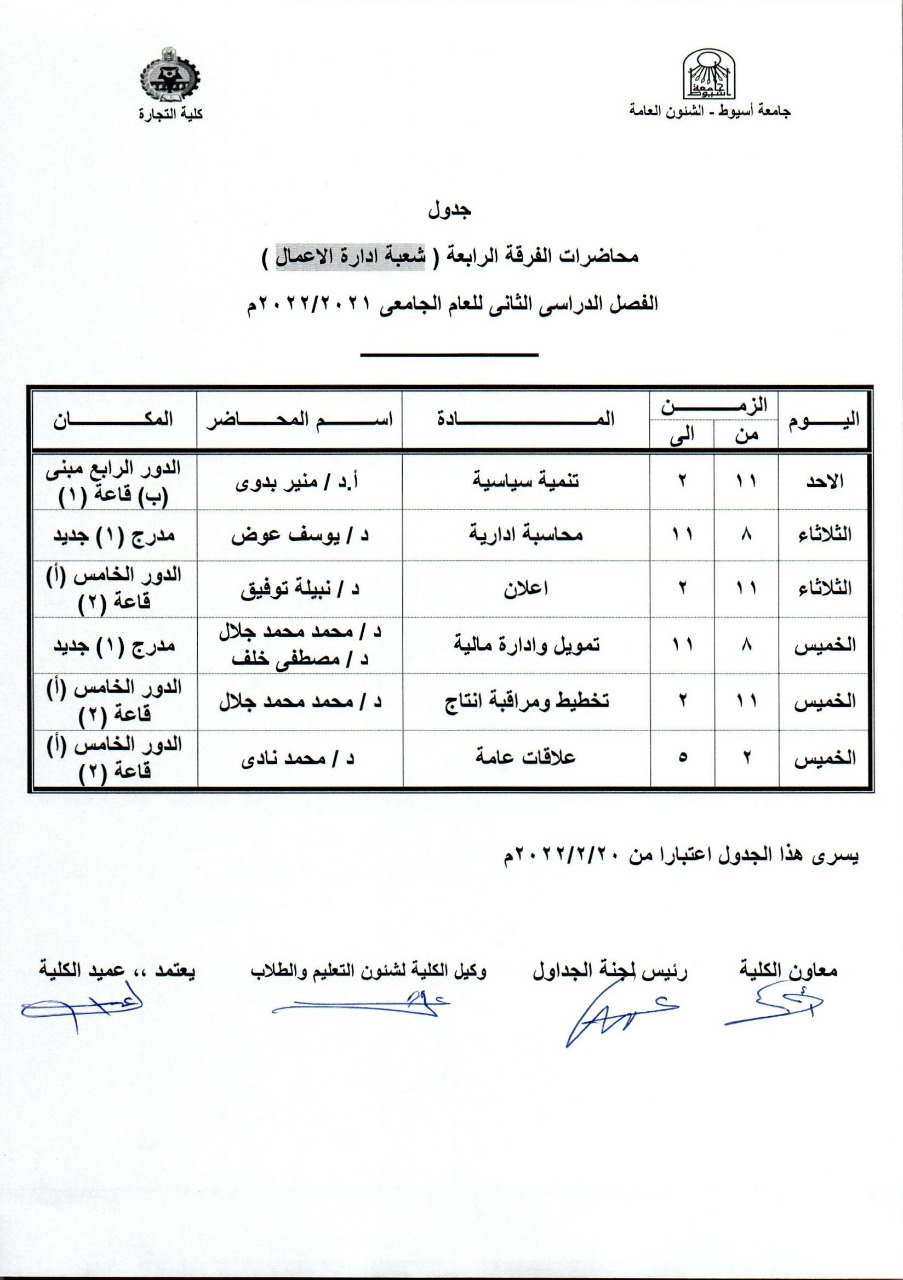 جامعة أسيوط
جامعة أسيوط - الشئون العامة
كلية التجارة
جدول
محاضرات الفرقة الرابعة ( شعبة ادارة الاعمال )
الفصل الدراسى الثانى للعام الجامعى ٢٠٢٢/٢٠٢١م
اليـوم الزمـن المـادة اسـم المحـاضر المكـان
من الى
الاحد ١١ ٢ تنمية سياسية أ.د / منير بدوى الدور الرابع مبنى
(ب) قاعة (١)
الثلاثاء ٨ ١١ محاسبة ادارية د / يوسف عوض مدرج (١) جديد
الثلاثاء ١١ ٢ اعلان د / نبيلة توفيق الدور الخامس (أ)
قاعة (٢)
الخميس ٨ ١١ تمويل وادارة مالية د / محمد محمد جلال مدرج (١) جديد
د / مصطفى خلف
الخميس ١١ ٢ تخطيط ومراقبة انتاج د / محمد محمد جلال الدور الخامس (أ)
قاعة (٢)
الخميس ٢ ٥ علاقات عامة د / محمد نادى الدور الخامس (أ)
قاعة (٢)
يسرى هذا الجدول اعتبارا من ٢٠٢٢/٢/٢٠م
معاون الكلية رئيس لجنة الجداول وكيل الكلية لشئون التعليم والطلاب يعتمد ،، عميد الكلية